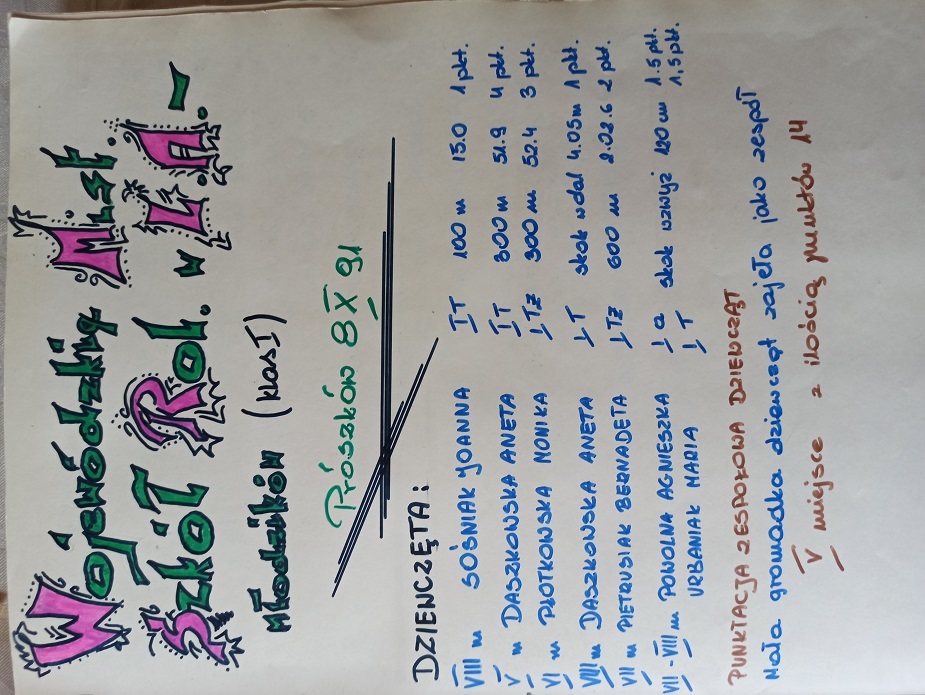 Wojewódzkie Mist.
Szkół Rol. w L.A. -
młodzików (klas I)
Prószków 8 X 91
DZIEWCZĘTA:
VIII m SOŚNIAK JOANNA I T 100 m 15.0 1 pkt.
V m DASZKOWSKA ANETA I T 300 m 51.9 4 pkt.
VI m PŁOTKOWSKA MONIKA I TŻ 300 m 52.4 3 pkt.
VIII m DASZKOWSKA ANETA I T skok w dal 4.05 m 1 pkt.
VII m PIETRUSIAK BERNADETA I TŻ 600 m 2.02.6 2 pkt.
VII - VIII m POWOLNA AGNIESZKA I a skok wzwyż 120 cm 1.5 pkt.
URBANIAK MARIA I T 1,5 pkt.
PUNKTACJA ZESPOŁOWA DZIEWCZĄT
Mała gromadka dziewcząt zajęła jako zespół
V miejsce z ilością punktów 14